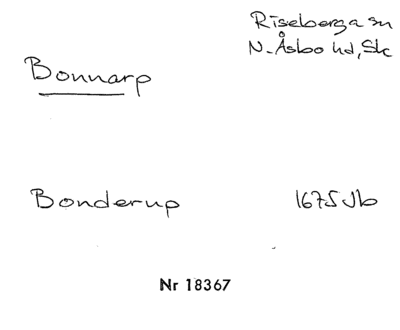 Riseberga sn
N. Åsbo hd, Sk
Bonnarp
Bonderup 1675 Jb
Nr 18367